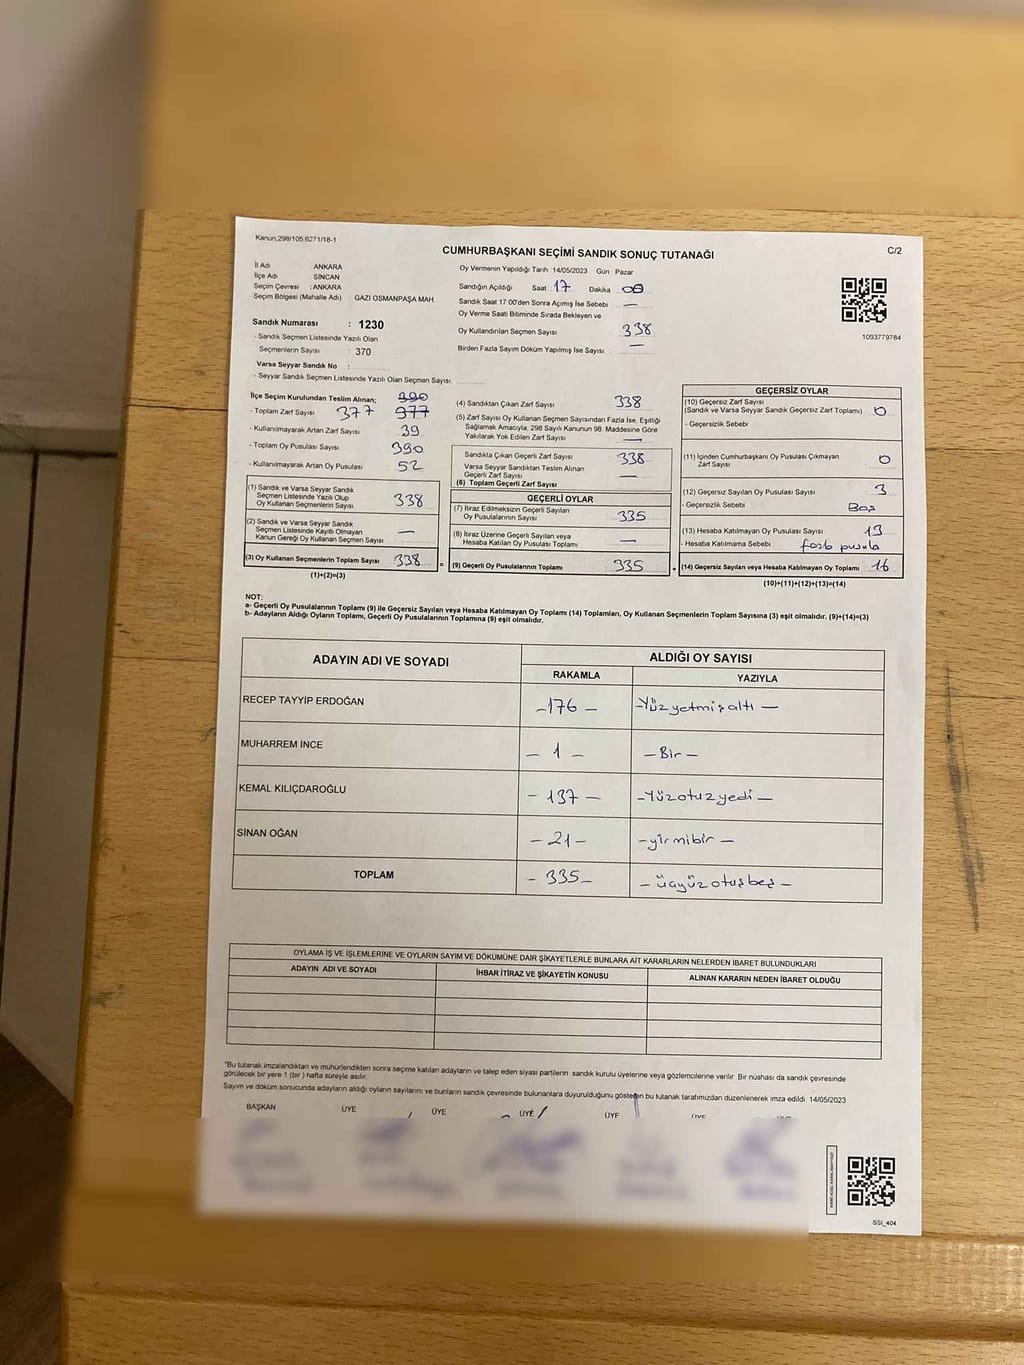 Kanun;298/105;6271/18-1
CUMHURBAŞKANI SEÇİMİ SANDIK SONUÇ TUTANAĞI
C/2
İl Adı ANKARA
İlçe Adı SİNCAN
Seçim Çevresi : ANKARA
Seçim Bölgesi (Mahalle Adı) GAZİ OSMANPAŞA MAH.
Oy Vermenin Yapıldığı Tarih :14/05/2023 Gün : Pazar
Sandığın Açıldığı Saat 17 Dakika 00
Sandık Saat 17:00'den Sonra Açımış İse Sebebi —
Oy Verme Saati Bitiminde Sırada Bekleyen ve
Oy Kullandırılan Seçmen Sayısı 338
Birden Fazla Sayım Döküm Yapılmış İse Sayısı —
1093779784
Sandık Numarası : 1230
- Sandık Seçmen Listesinde Yazılı Olan
Seçmenlerin Sayısı : 370
Varsa Seyyar Sandık No :
- Seyyar Sandık Seçmen Listesinde Yazılı Olan Seçmen Sayısı:
İlçe Seçim Kurulundan Teslim Alınan; 390
- Toplam Zarf Sayısı 377 977
- Kullanılmayarak Artan Zarf Sayısı 39
- Toplam Oy Pusulası Sayısı 390
- Kullanılmayarak Artan Oy Pusulası 52
(1) Sandık ve Varsa Seyyar Sandık
Seçmen Listesinde Yazılı Olup
Oy Kullanan Seçmenlerin Sayısı 338
(2) Sandık ve Varsa Seyyar Sandık
Seçmen Listesinde Kayıtlı Olmayan
Kanun Gereği Oy Kullanan Seçmen Sayısı —
(3) Oy Kullanan Seçmenlerin Toplam Sayısı 338 =
(1)+(2)=(3)
(4) Sandıktan Çıkan Zarf Sayısı 338
(5) Zarf Sayısı Oy Kullanan Seçmen Sayısından Fazla İse, Eşitliği
Sağlamak Amacıyla, 298 Sayılı Kanunun 98. Maddesine Göre
Yakılarak Yok Edilen Zarf Sayısı —
Sandıkta Çıkan Geçerli Zarf Sayısı 338
Varsa Seyyar Sandıktan Teslim Alınan
Geçerli Zarf Sayısı —
(6) Toplam Geçerli Zarf Sayısı
GEÇERLİ OYLAR
(7) İtiraz Edilmeksizin Geçerli Sayılan
Oy Pusulalarının Sayısı 335
(8) İtiraz Üzerine Geçerli Sayılan veya
Hesaba Katılan Oy Pusulası Toplamı —
(9) Geçerli Oy Pusulalarının Toplamı 335 +
GEÇERSİZ OYLAR
(10) Geçersiz Zarf Sayısı
(Sandık ve Varsa Seyyar Sandık Geçersiz Zarf Toplamı) 0
- Geçersizlik Sebebi
(11) İçinden Cumhurbaşkanı Oy Pusulası Çıkmayan
Zarf Sayısı 0
(12) Geçersiz Sayılan Oy Pusulası Sayısı 3
- Geçersizlik Sebebi Boş
(13) Hesaba Katılmayan Oy Pusulası Sayısı 13
- Hesaba Katılmama Sebebi : fazla pusula
(14) Geçersiz Sayılan veya Hesaba Katılmayan Oy Toplamı 16
(10)+(11)+(12)+(13)=(14)
NOT:
a- Geçerli Oy Pusulalarının Toplamı (9) ile Geçersiz Sayılan veya Hesaba Katılmayan Oy Toplamı (14) Toplamları, Oy Kullanan Seçmenlerin Toplam Sayısına (3) eşit olmalıdır. (9)+(14)=(3)
b- Adayların Aldığı Oyların Toplamı, Geçerli Oy Pusulalarının Toplamına (9) eşit olmalıdır.
ADAYIN ADI VE SOYADI ALDIĞI OY SAYISI
RAKAMLA YAZIYLA
RECEP TAYYİP ERDOĞAN -176- -Yüzyetmişaltı-
MUHARREM İNCE - 1 - -Bir-
KEMAL KILIÇDAROĞLU -137- -Yüzotuzyedi-
SİNAN OĞAN -21- -yirmibir-
TOPLAM -335- -üçyüzotuzbeş-
OYLAMA İŞ VE İŞLEMLERİNE VE OYLARIN SAYIM VE DÖKÜMÜNE DAİR ŞİKAYETLERLE BUNLARA AİT KARARLARIN NELERDEN İBARET BULUNDUKLARI
ADAYIN ADI VE SOYADI İHBAR İTİRAZ VE ŞİKAYETİN KONUSU ALINAN KARARIN NEDEN İBARET OLDUĞU
"Bu tutanak imzalandıktan ve mühürlendikten sonra seçime katılan adayların ve talep eden siyasi partilerin sandık kurulu üyelerine veya gözlemcilerine verilir. Bir nüshası da sandık çevresinde
görülecek bir yere 1 (bir) hafta süreyle asılır.
Sayım ve döküm sonucunda adayların aldığı oyların sayılarını ve bunların sandık çevresinde bulunanlara duyurulduğunu gösteren bu tutanak tarafımızdan düzenlenerek imza edildi. 14/05/2023
BAŞKAN ÜYE ÜYE ÜYE ÜYE ÜYE ÜYE
SSI_404